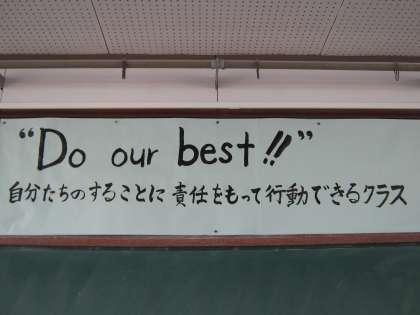 “Do our best!!”
自分たちのすることに責任をもって行動できるクラス